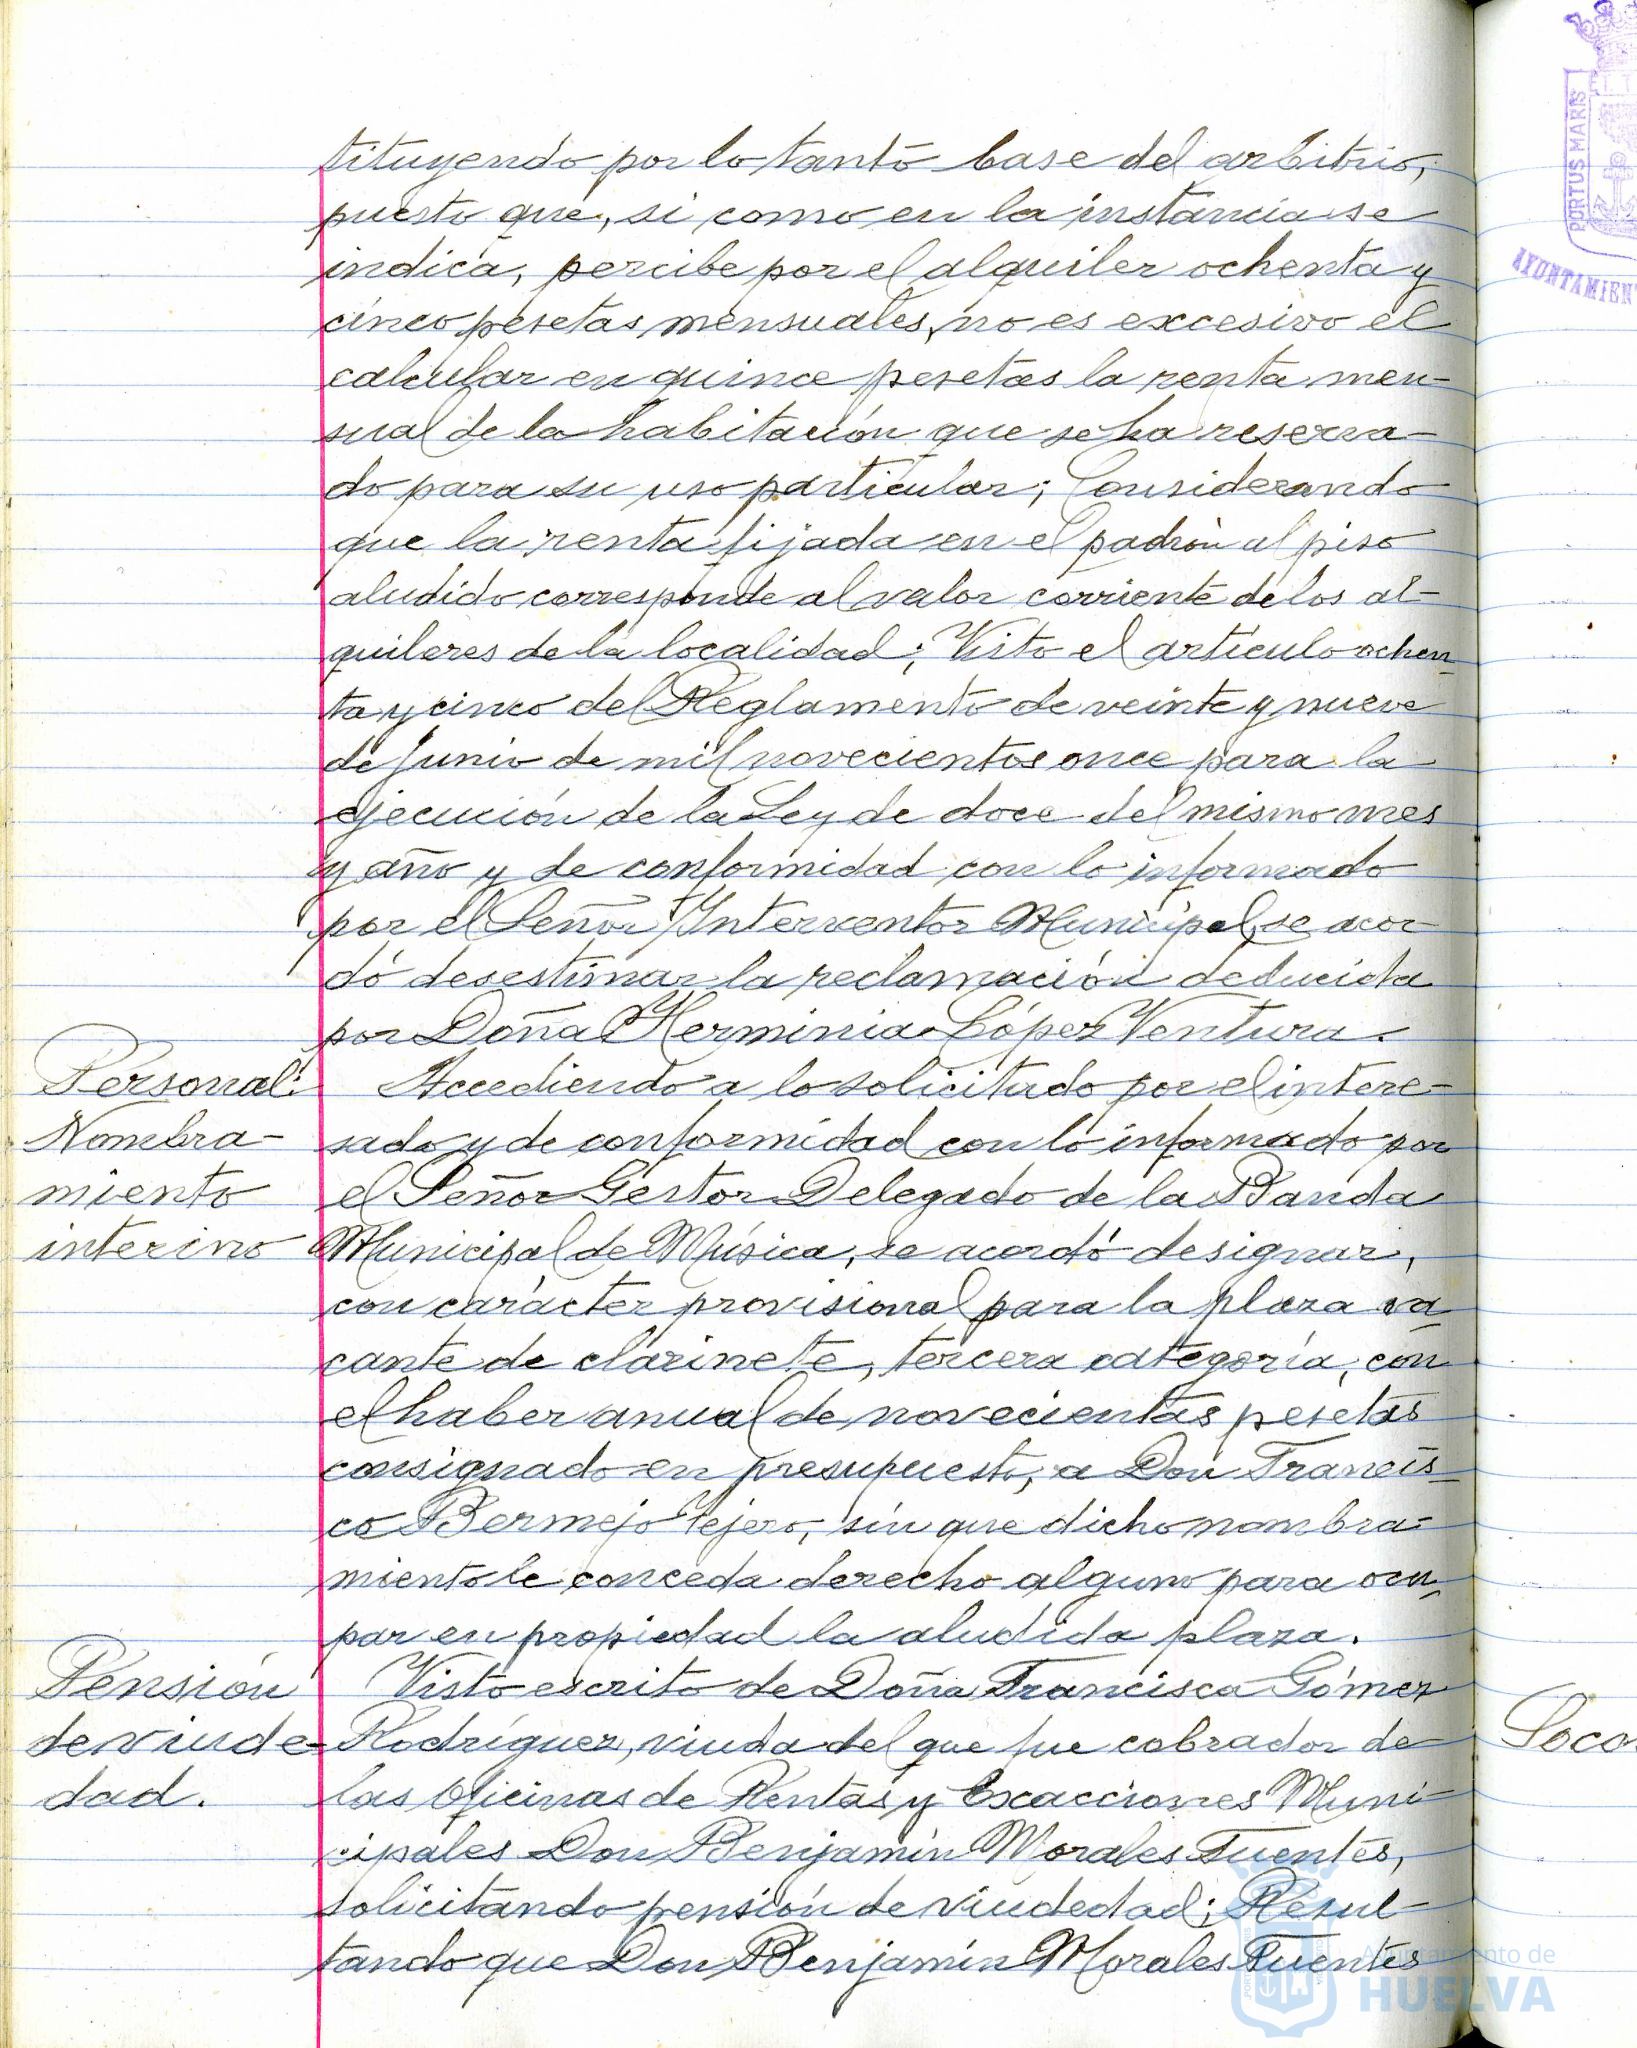 tituyendo por lo tanto base del arbitrio,
puesto que, si como en la instancia se
indica, percibe por el alquiler ochenta y
cinco pesetas mensuales, no es excesivo el
calcular en quince pesetas la renta men-
sual de la habitación que se ha reserva-
do para su uso particular; Considerando
que la renta fijada en el padrón al piso
aludido corresponde al valor corriente de los al-
quileres de la localidad; Visto el artículo ochen-
ta y cinco del Reglamento de veinte y nueve
de Junio de mil novecientos once para la
ejecución de la Ley de doce del mismo mes
y año y de conformidad con lo informado
por el Señor Interventor Municipal, se acor-
dó desestimar la reclamación deducida
por Doña Herminia López Ventura.
Personal:
Nombra-
miento
interino
Accediendo a lo solicitado por el intere-
sado y de conformidad con lo informado por
el Señor Gestor Delegado de la Banda
Municipal de Música, se acordó designar,
con carácter provisional para la plaza va-
cante de clarinete, tercera categoría, con
el haber anual de novecientas pesetas
consignado en presupuesto, a Don Francis-
co Bermejo Tejero, sin que dicho nombra-
miento le conceda derecho alguno para ocu-
par en propiedad la aludida plaza.
Pensión
de viude-
dad.
Visto escrito de Doña Francisca Gómez
Rodríguez, viuda del que fue cobrador de
las Oficinas de Rentas y Exacciones Muni-
cipales Don Benjamín Morales Fuentes,
solicitando pensión de viudedad; Resul-
tando que Don Benjamín Morales Fuentes
Soco
PORTUS MARIS
AYUNTAMIEN
Ayuntamiento de
HUELVA